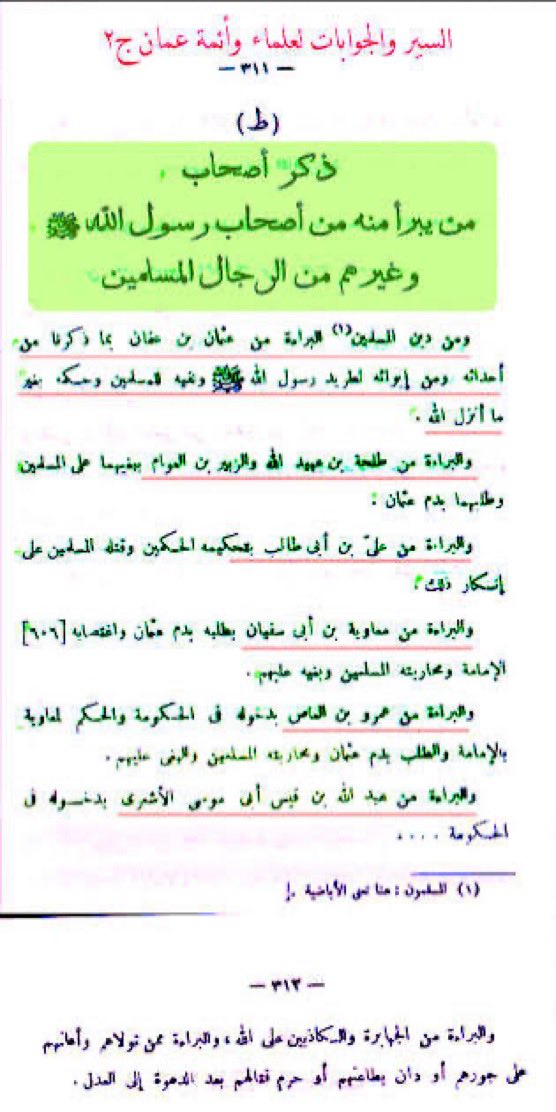 السير والجوابات لعلماء وأئمة عمان ج٢
— ٣١١ —
(ط)
ذكر أصحاب
من يبرأ منه من أصحاب رسول الله ﷺ
وغيرهم من الرجال المسلمين
ومن دين المسلمين(١) البراءة من عثمان بن عفان بما ذكرنا من
أحداثه ومن إيوائه لطريد رسول الله ﷺ ونفيه للمسلمين وحكمه بغير
ما أنزل الله .
والبراءة من طلحة بن عبيد الله والزبير بن العوام ببغيهما على المسلمين
وطلبهما بدم عثمان :
والبراءة من علىّ بن أبى طالب بتحكيمه الحكمين وقتله المسلمين على
إنكار ذلك :
والبراءة من معاوية بن أبى سفيان بطلبه بدم عثمان واغتصابه [٦٠٦]
الإمامة ومحاربته المسلمين وبغيه عليهم .
والبراءة من عمرو بن العاص بدخوله فى الحكومة والحكم لمعاوية
بالإمامة والطلب بدم عثمان ومحاربته المسلمين والبغى عليهم .
والبراءة من عبد الله بن قيس أبى موسى الأشعرى بدخوله فى
الحكومة ....
(١) المسلمون : هنا تعنى الأباضية .
— ٣١٢ —
والبراءة من الجبابرة والكاذبين على الله ، والبراءة ممن تولاهم وأعانهم
على جورهم أو دان بطاعتهم أو حرم قتالهم بعد الدعوة إلى العدل .